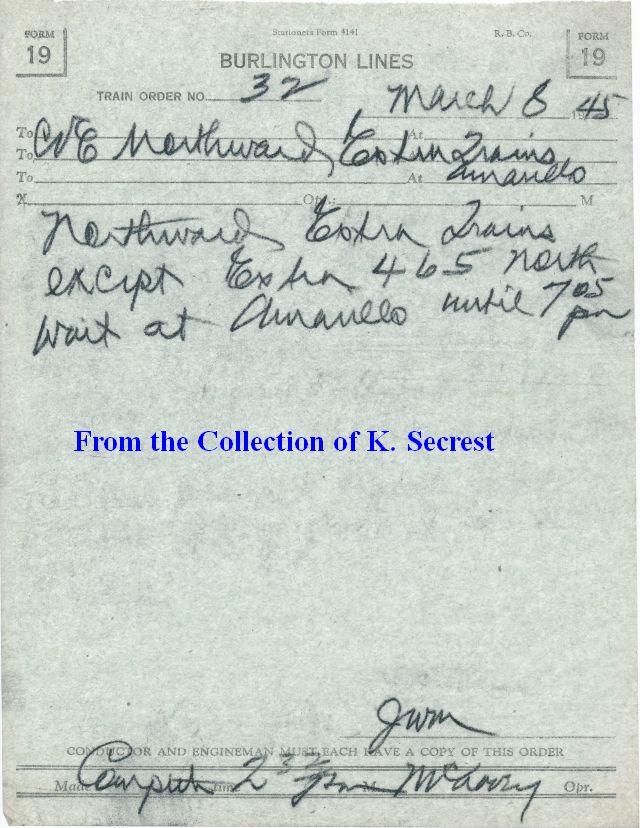 FORM 19
Stationers Form 4141 R. B. Co.
FORM 19
BURLINGTON LINES
TRAIN ORDER NO. 32
March 8 1945
To C&E Northward Extra Trains At
To
To At Amarillo
X Opr.: M
Northward Extra Trains
except Extra 465 North
wait at Amarillo until 705
pm
From the Collection of K. Secrest
JWM
CONDUCTOR AND ENGINEMAN MUST EACH HAVE A COPY OF THIS ORDER
Made time 232 pm M Opr.